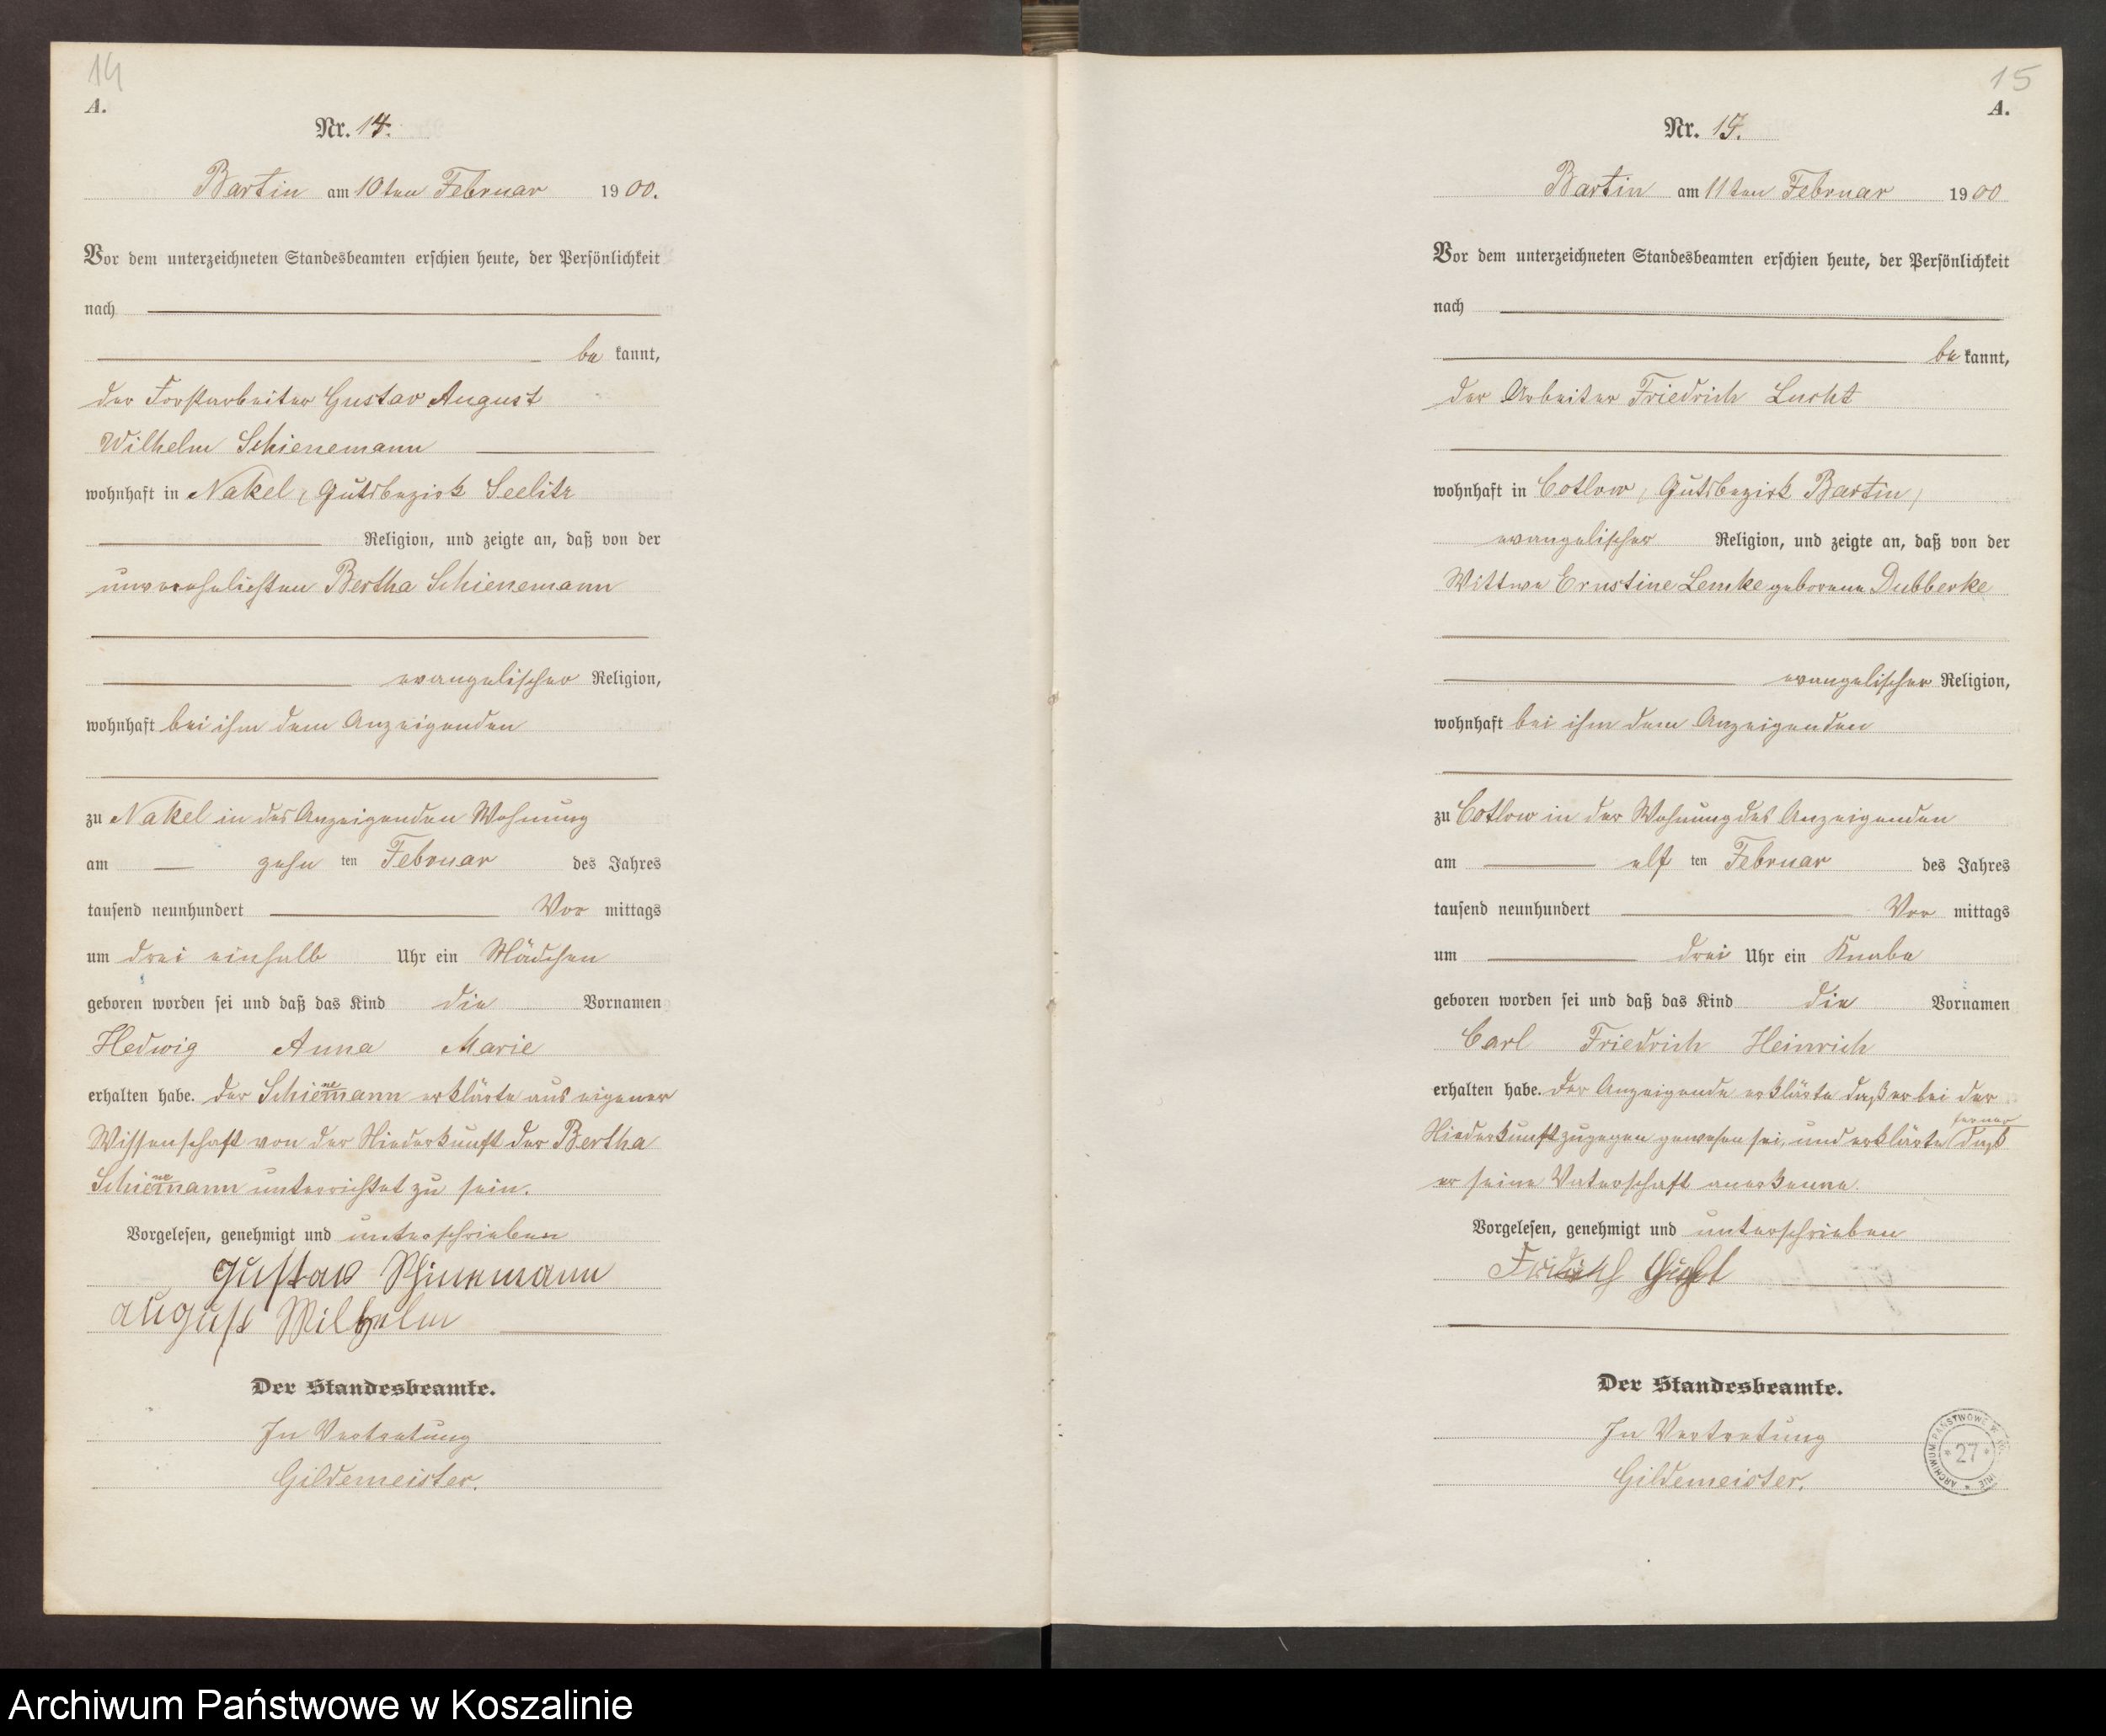 14
A.
Nr. 14.
Bartin am 10ten Februar 1900.
Vor dem unterzeichneten Standesbeamten erschien heute, der Persönlichkeit
nach
be kannt,
der Forstarbeiter Gustav August
Wilhelm Schienemann
wohnhaft in Nakel, Gutsbezirk Seelitz
Religion, und zeigte an, daß von der
unverehelichten Bertha Schienemann
evangelischer Religion,
wohnhaft bei ihm dem Anzeigenden
zu Nakel in des Anzeigenden Wohnung
am zehn ten Februar des Jahres
tausend neunhundert Vor mittags
um drei einhalb Uhr ein Mädchen
geboren worden sei und daß das Kind die Vornamen
Hedwig Anna Marie
erhalten habe. Der Schienemann erklärte aus eigener
Wissenschaft von der Niederkunft der Bertha
Schienemann unterrichtet zu sein.
Vorgelesen, genehmigt und unterschrieben
Gustav Schienemann
August Wilhelm
Der Standesbeamte.
In Vertretung
Gildemeister.
15
A.
Nr. 15.
Bartin am 11ten Februar 1900
Vor dem unterzeichneten Standesbeamten erschien heute, der Persönlichkeit
nach
be kannt,
der Arbeiter Friedrich Lucht
wohnhaft in Cotlow, Gutsbezirk Bartin,
evangelischer Religion, und zeigte an, daß von der
Wittwe Ernstine Lemke geborene Dubberke
evangelischer Religion,
wohnhaft bei ihm dem Anzeigenden
zu Cotlow in der Wohnung des Anzeigenden
am elf ten Februar des Jahres
tausend neunhundert Vor mittags
um drei Uhr ein Knabe
geboren worden sei und daß das Kind die Vornamen
Carl Friedrich Heinrich
erhalten habe. Der Anzeigende erklärte daß er bei der
Niederkunft zugegen gewesen sei, und erklärte ferner daß
er seine Vaterschaft anerkenne.
Vorgelesen, genehmigt und unterschrieben
Fridrich Lucht
Der Standesbeamte.
In Vertretung
Gildemeister.
ARCHIWUM PAŃSTWOWE W
27
Archiwum Państwowe w Koszalinie